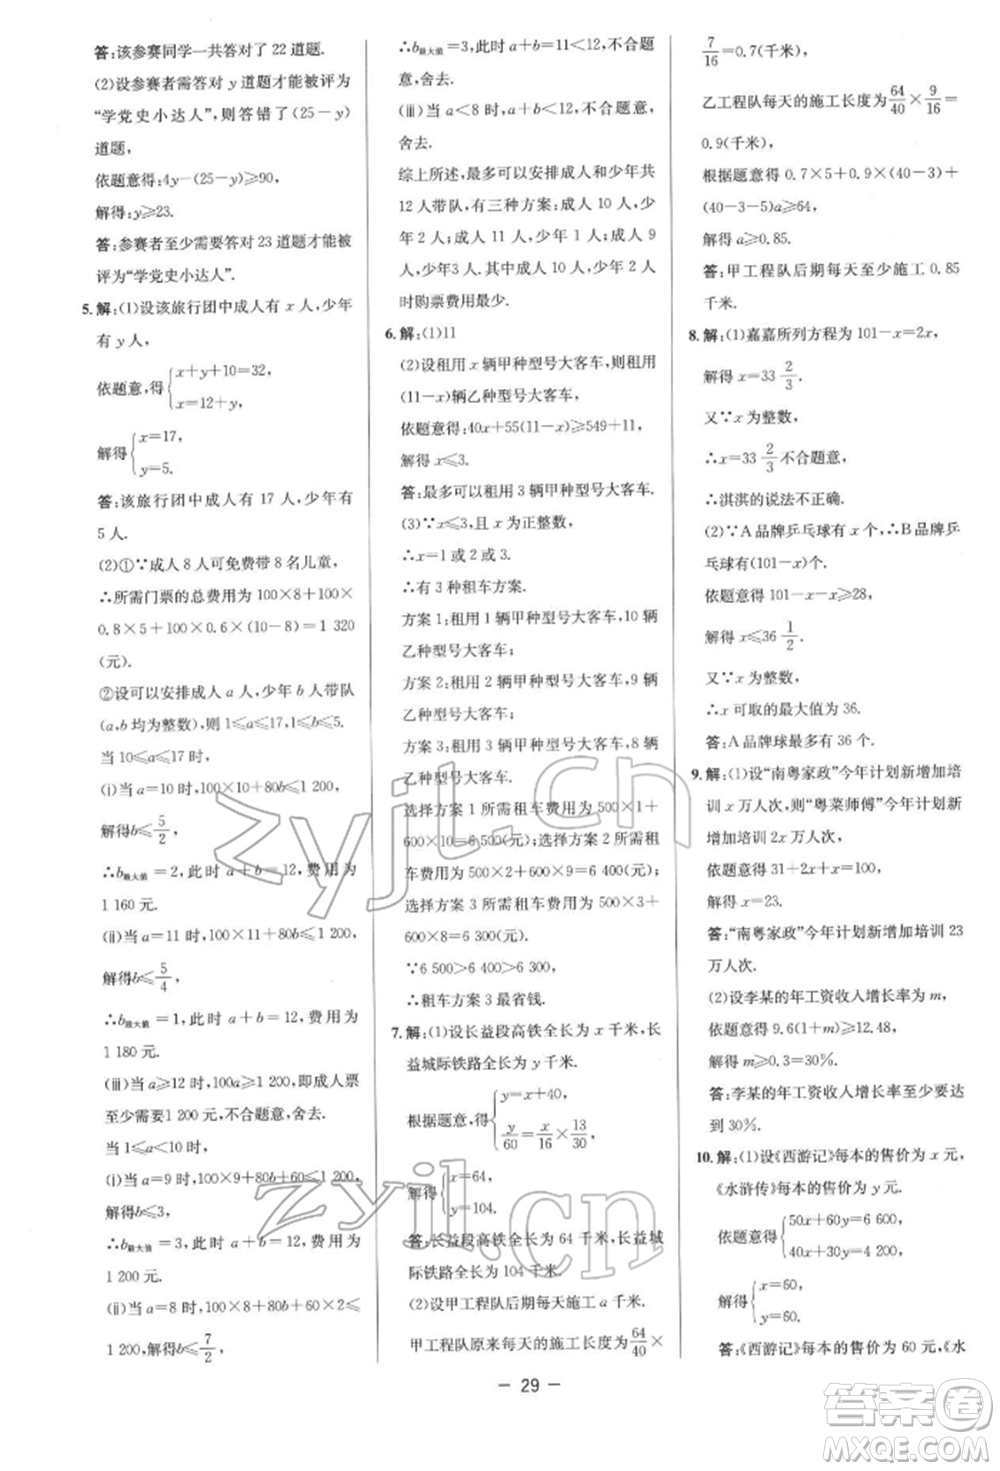 答:该参赛同学一共答对了 22 道题.
(2)设参赛者需答对 y 道题才能被评为
“学党史小达人”,则答错了(25-y)
道题,
依题意得:4y-(25-y)≥90,
解得:y≥23.
答:参赛者至少需要答对 23 道题才能被
评为“学党史小达人”.
5. 解:(1)设该旅行团中成人有 x 人,少年
有 y 人,
依题意,得{x+y+10=32,
x=12+y,
解得{x=17,
y=5.
答:该旅行团中成人有 17 人,少年有
5 人.
(2)①∵成人 8 人可免费带 8 名儿童,
∴所需门票的总费用为 100×8+100×
0.8×5+100×0.6×(10-8)=1 320
(元).
②设可以安排成人 a 人,少年 b 人带队
(a,b 均为整数),则 1≤a≤17,1≤b≤5.
当 10≤a≤17 时,
(ⅰ)当 a=10 时,100×10+80b≤1 200,
解得b≤5/2,
∴b最大值=2,此时 a+b=12,费用为
1 160 元.
(ⅱ)当 a=11 时,100×11+80b≤1 200,
解得b≤5/4,
∴b最大值=1,此时 a+b=12,费用为
1 180 元.
(ⅲ)当 a≥12 时,100a≥1 200,即成人票
至少需要1 200元,不合题意,舍去.
当 1≤a<10 时,
(ⅰ)当 a=9 时,100×9+80b+60≤1 200,
解得b≤3,
∴b最大值=3,此时 a+b=12,费用为
1 200 元.
(ⅱ)当 a=8 时,100×8+80b+60×2≤
1 200,解得b≤7/2,
∴b最大值=3,此时 a+b=11<12,不合题
意,舍去.
(ⅲ)当 a<8 时,a+b<12,不合题意,
舍去.
综上所述,最多可以安排成人和少年共
12 人带队,有三种方案:成人 10 人,少
年 2 人;成人 11 人,少年 1 人;成人 9
人,少年3 人,其中成人 10 人,少年 2 人
时购票费用最少.
6. 解:(1)11
(2)设租用 x 辆甲种型号大客车,则租用
(11-x)辆乙种型号大客车,
依题意得:40x+55(11-x)≥549+11,
解得 x≤3.
答:最多可以租用 3 辆甲种型号大客车.
(3)∵x≤3,且 x 为正整数,
∴x=1 或 2 或 3,
∴有 3 种租车方案.
方案 1:租用 1 辆甲种型号大客车,10 辆
乙种型号大客车;
方案 2:租用 2 辆甲种型号大客车,9 辆
乙种型号大客车;
方案 3:租用 3 辆甲种型号大客车,8 辆
乙种型号大客车.
选择方案 1 所需租车费用为 500×1+
600×10=6 500(元);选择方案 2 所需租
车费用为 500×2+600×9=6 400(元);
选择方案 3 所需租车费用为 500×3+
600×8=6 300(元).
∵6 500>6 400>6 300,
∴租车方案 3 最省钱.
7. 解:(1)设长益段高铁全长为 x 千米,长
益城际铁路全长为 y 千米.
根据题意,得{y=x+40,
y/60=x/16×13/30,
解得{x=64,
y=104.
答:长益段高铁全长为 64 千米,长益城
际铁路全长为 104 千米.
(2)设甲工程队后期每天施工 a 千米.
甲工程队原来每天的施工长度为64/40×
7/16=0.7(千米),
乙工程队每天的施工长度为64/40×9/16=
0.9(千米),
根据题意得 0.7×5+0.9×(40-3)+
(40-3-5)a≥64,
解得 a≥0.85.
答:甲工程队后期每天至少施工 0.85
千米.
8. 解:(1)嘉嘉所列方程为 101-x=2x,
解得 x=33 2/3.
又∵x 为整数,
∴x=33 2/3不合题意,
∴淇淇的说法不正确.
(2)∵A 品牌乒乓球有 x 个,∴B 品牌乒
乓球有(101-x)个.
依题意得 101-x-x≥28,
解得 x≤36 1/2.
又∵x 为整数,
∴x 可取的最大值为 36.
答:A 品牌球最多有 36 个.
9. 解:(1)设“南粤家政”今年计划新增加培
训 x 万人次,则“粤菜师傅”今年计划新
增加培训 2x 万人次,
依题意得 31+2x+x=100,
解得 x=23.
答:“南粤家政”今年计划新增加培训 23
万人次.
(2)设李某的年工资收入增长率为 m,
依题意得 9.6(1+m)≥12.48,
解得 m≥0.3=30%.
答:李某的年工资收入增长率至少要达
到 30%.
10. 解:(1)设《西游记》每本的售价为 x 元,
《水浒传》每本的售价为 y 元.
依题意得{50x+60y=6 600,
40x+30y=4 200,
解得{x=60,
y=60.
答:《西游记》每本的售价为 60 元,《水
- 29 -
zyjl.cn
zyjl.cn
答案圈
MXQE.COM